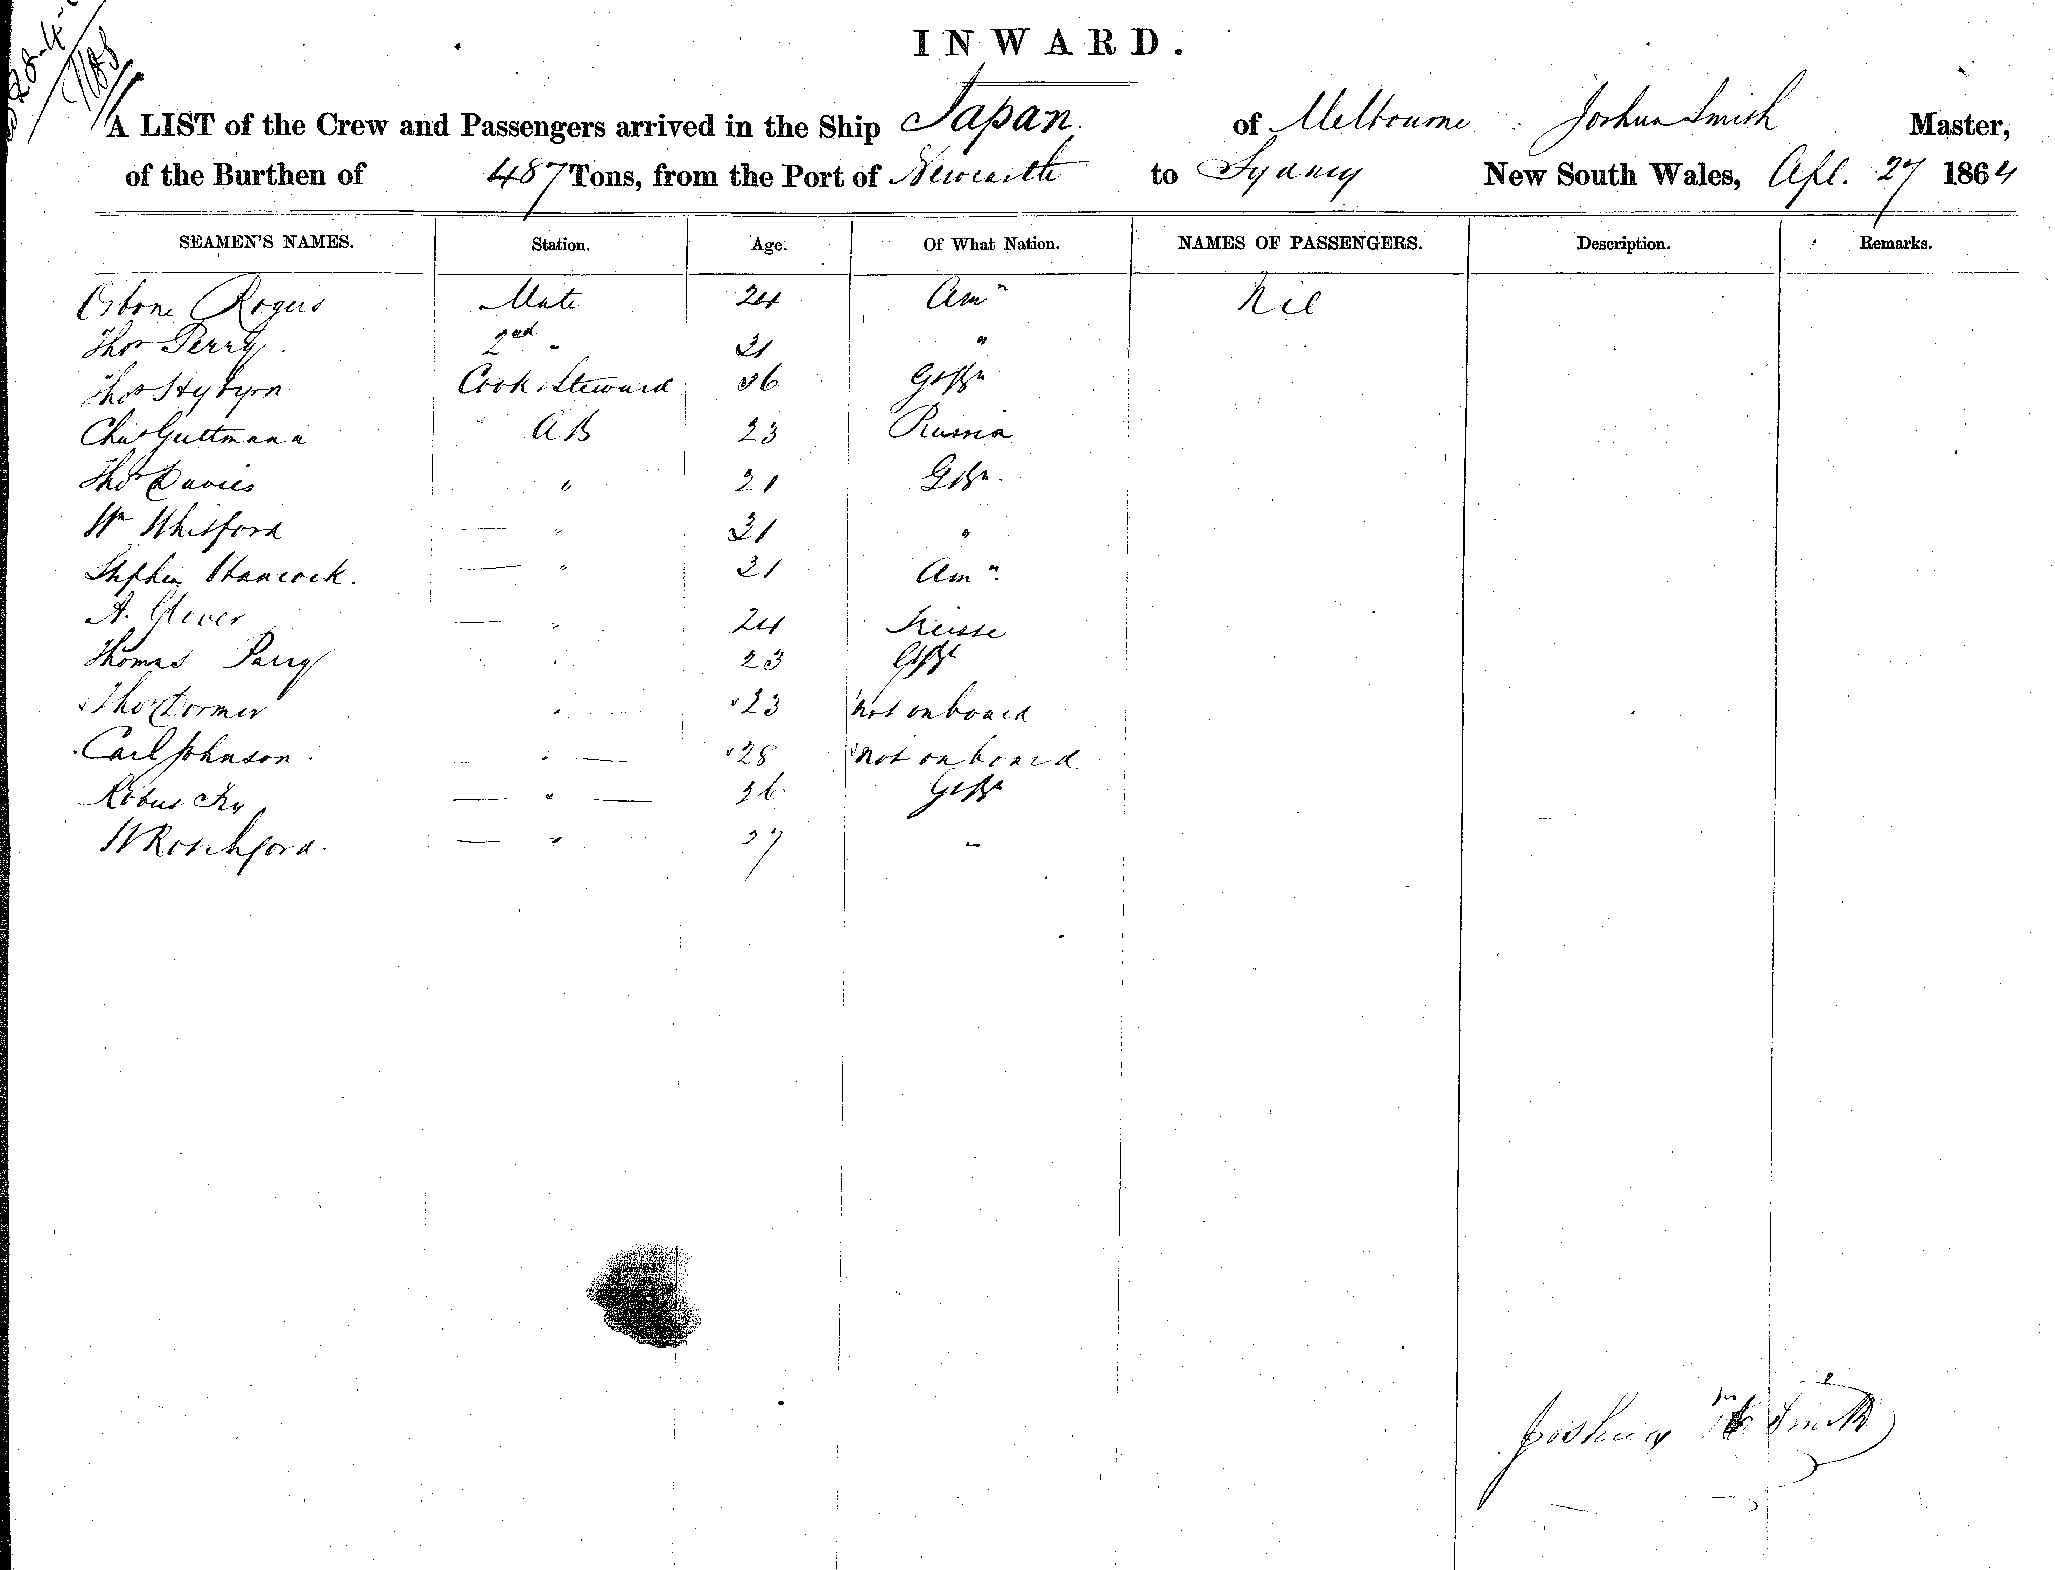 INWARD.
A LIST of the Crew and Passengers arrived in the Ship Japan of Melbourne Joshua Smith Master,
of the Burthen of 487 Tons, from the Port of Newcastle to Sydney New South Wales, Apl. 27 1864
SEAMEN'S NAMES. Station. Age. Of What Nation. NAMES OF PASSENGERS. Description. Remarks.
Osbone Rogers Mate 24 Amn Nil
Thos Perry 2nd " 21 "
Thos Cook Steward 36
Chas Guttmann AB 23 Russia
Thos Davies " 21
Wm Whitford " 31 "
Stephen Hancock. " 21 Amn.
A. Glover " 24
Thomas Parry " 23
Thos Dormer " 23 not on board
Carl Johnson " 28 not on board
" 26
W Rotchford. " 27 "
Joshua Smith